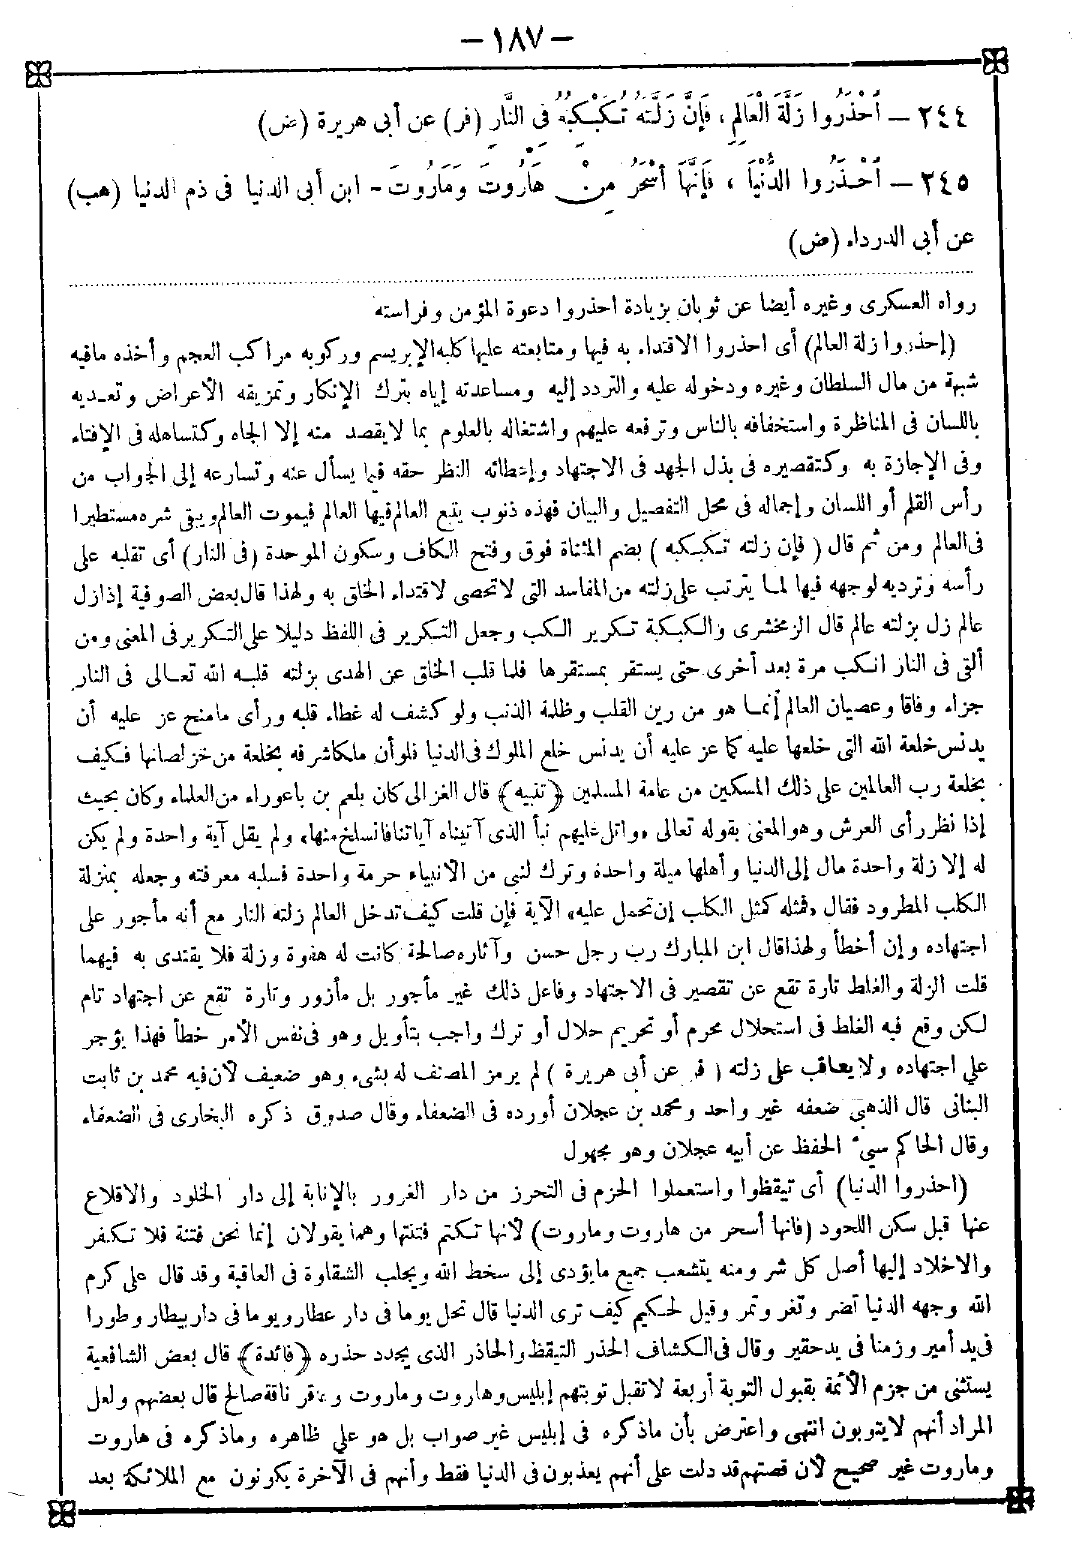 — ١٨٧ —
٢٤٤ — أَحْذَرُوا زَلَّةَ الْعَالِمِ، فَإِنَّ زَلَّتَهُ تُكَبْكِبُهُ فِى النَّارِ (فر) عن أبى هريرة (ض)
٢٤٥ — أَحْذَرُوا الدُّنْيَا ، فَإِنَّهَا أَسْحَرُ مِنْ هَارُوتَ وَمَارُوتَ - ابن أبى الدنيا فى ذم الدنيا (هب)
عن أبى الدرداء (ض)
رواه العسكرى وغيره أيضا عن ثوبان بزيادة احذروا دعوة المؤمن وفراسته
(إحذروا زلة العالم) أى احذروا الاقتداء به فيها ومتابعته عليها كلبه الإبريسم وركوبه مراكب العجم وأخذه مافيه
شبهة من مال السلطان وغيره ودخوله عليه والتردد إليه ومساعدته إياه بترك الإنكار وتمزيقه الأعراض وتعديه
باللسان فى المناظرة واستخفافه بالناس وترفعه عليهم واشتغاله بالعلوم بما لايقصد منه إلا الجاه وكتساهله فى الإفتاء
وفى الإجازة به وكتقصيره فى بذل الجهد فى الاجتهاد وإعطائه النظر حقه فيما يسأل عنه وتسارعه إلى الجواب من
رأس القلم أو اللسان وإجماله فى محل التفصيل والبيان فهذه ذنوب يتبع العالم فيها العالم فيموت العالم ويبقى شره مستطيرا
فى العالم ومن ثم قال ( فإن زلته تكبكبه ) بضم المثناة فوق وفتح الكاف وسكون الموحدة (فى النار) أى تقلبه على
رأسه وترديه لوجهه فيها لما يترتب على زلته من المفاسد التى لاتحصى لاقتداء الخلق به ولهذا قال بعض الصوفية إذا زل
عالم زل بزلته عالم قال الزمخشرى والكبكبة تكرير الكب وجعل التكرير فى اللفظ دليلا على التكرير فى المعنى ومن
ألقى فى النار انكب مرة بعد أخرى حتى يستقر بمستقرها فلما قلب الخلق عن الهدى بزلته قلبه الله تعالى فى النار
جزاء وفاقا وعصيان العالم إنما هو من رين القلب وظلمة الذنب ولو كشف له غطاء قلبه ورأى مامنح عز عليه أن
يدنس خلعة الله التى خلعها عليه كما عز عليه أن يدنس خلع الملوك فى الدنيا فلو أن ملكا شرفه بخلعة من خز لصانها فكيف
بخلعة رب العالمين على ذلك المسكين من عامة المسلمين (تنبيه) قال الغزالى كان بلعم بن باعوراء من العلماء وكان بحيث
إذا نظر رأى العرش وهو المعنى بقوله تعالى «واتل عليهم نبأ الذى آتيناه آياتنا فانسلخ منها» ولم يقل آية واحدة ولم يكن
له إلا زلة واحدة مال إلى الدنيا وأهلها ميلة واحدة وترك لنبى من الأنبياء حرمة واحدة فسلبه معرفته وجعله بمنزلة
الكلب المطرود فقال «فمثله كمثل الكلب إن تحمل عليه» الآية فإن قلت كيف تدخل العالم زلته النار مع أنه مأجور على
اجتهاده وإن أخطأ ولهذا قال ابن المبارك رب رجل حسن وآثاره صالحة كانت له هفوة وزلة فلا يقتدى به فيهما
قلت الزلة والغلط تارة تقع عن تقصير فى الاجتهاد وفاعل ذلك غير مأجور بل مأزور وتارة تقع عن اجتهاد تام
لكن وقع فيه الغلط فى استحلال محرم أو تحريم حلال أو ترك واجب بتأويل وهو فى نفس الأمر خطأ فهذا يؤجر
على اجتهاده ولا يعاقب على زلته ( فر عن أبى هريرة ) لم يرمز المصنف له بشىء وهو ضعيف لأن فيه محمد بن ثابت
البنانى قال الذهبى ضعفه غير واحد ومحمد بن عجلان أورده فى الضعفاء وقال صدوق ذكره البخارى فى الضعفاء
وقال الحاكم سيئ الحفظ عن أبيه عجلان وهو مجهول
(احذروا الدنيا) أى تيقظوا واستعملوا الحزم فى التحرز من دار الغرور بالإنابة إلى دار الخلود والاقلاع
عنها قبل سكن اللحود (فانها أسحر من هاروت وماروت) لأنها تكتم فتنتها وهما يقولان إنما نحن فتنة فلا تكفر
والاخلاد إليها أصل كل شر ومنه يتشعب جميع مايؤدى إلى سخط الله ويجلب الشقاوة فى العاقبة وقد قال على كرم
الله وجهه الدنيا تضر وتغر وتمر وقيل لحكيم كيف ترى الدنيا قال تحل يوما فى دار عطار ويوما فى دار بيطار وطورا
فى يد أمير وزمنا فى يد حقير وقال فى الكشاف الحذر التيقظ والحاذر الذى يجدد حذره (فائدة) قال بعض الشافعية
يستثنى من جزم الأئمة بقبول التوبة أربعة لاتقبل توبتهم إبليس وهاروت وماروت وعاقر ناقة صالح قال بعضهم ولعل
المراد أنهم لايتوبون انتهى واعترض بأن ماذكره فى إبليس غير صواب بل هو على ظاهره وماذكره فى هاروت
وماروت غير صحيح لأن قصتهم قد دلت على أنهم يعذبون فى الدنيا فقط وأنهم فى الآخرة يكونون مع الملائكة بعد